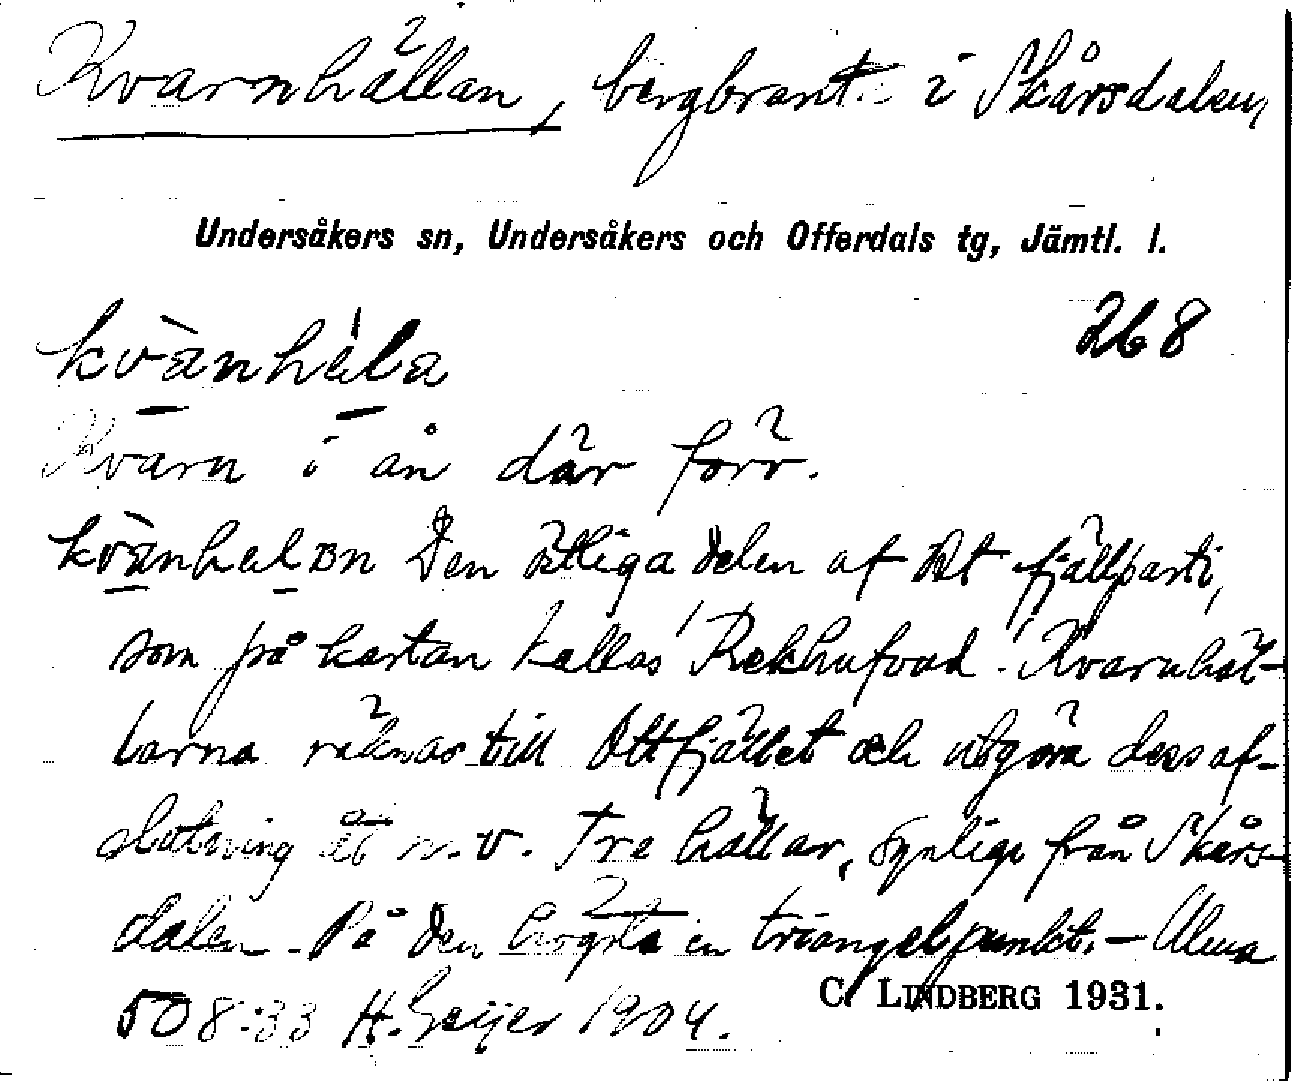 Kvarnhällan, bergbrant i Skårsdalen,
Undersåkers sn, Undersåkers och Offerdals tg, Jämtl. l.
268
kvànhä́la
Kvarn i ån där förr.
kvànhalon Den östliga delen af det fjällparti,
som på kartan kallas 'Rekhufvud'. Kvarnhäl-
larna räknas till Ottfjället och utgöra dess af-
slutning åt n.v. Tre hällar, synliga från Skårs-
dalen. På den högsta en triangelpunkt. –
508:33 H. Geijer 1904.
C. LINDBERG 1931.